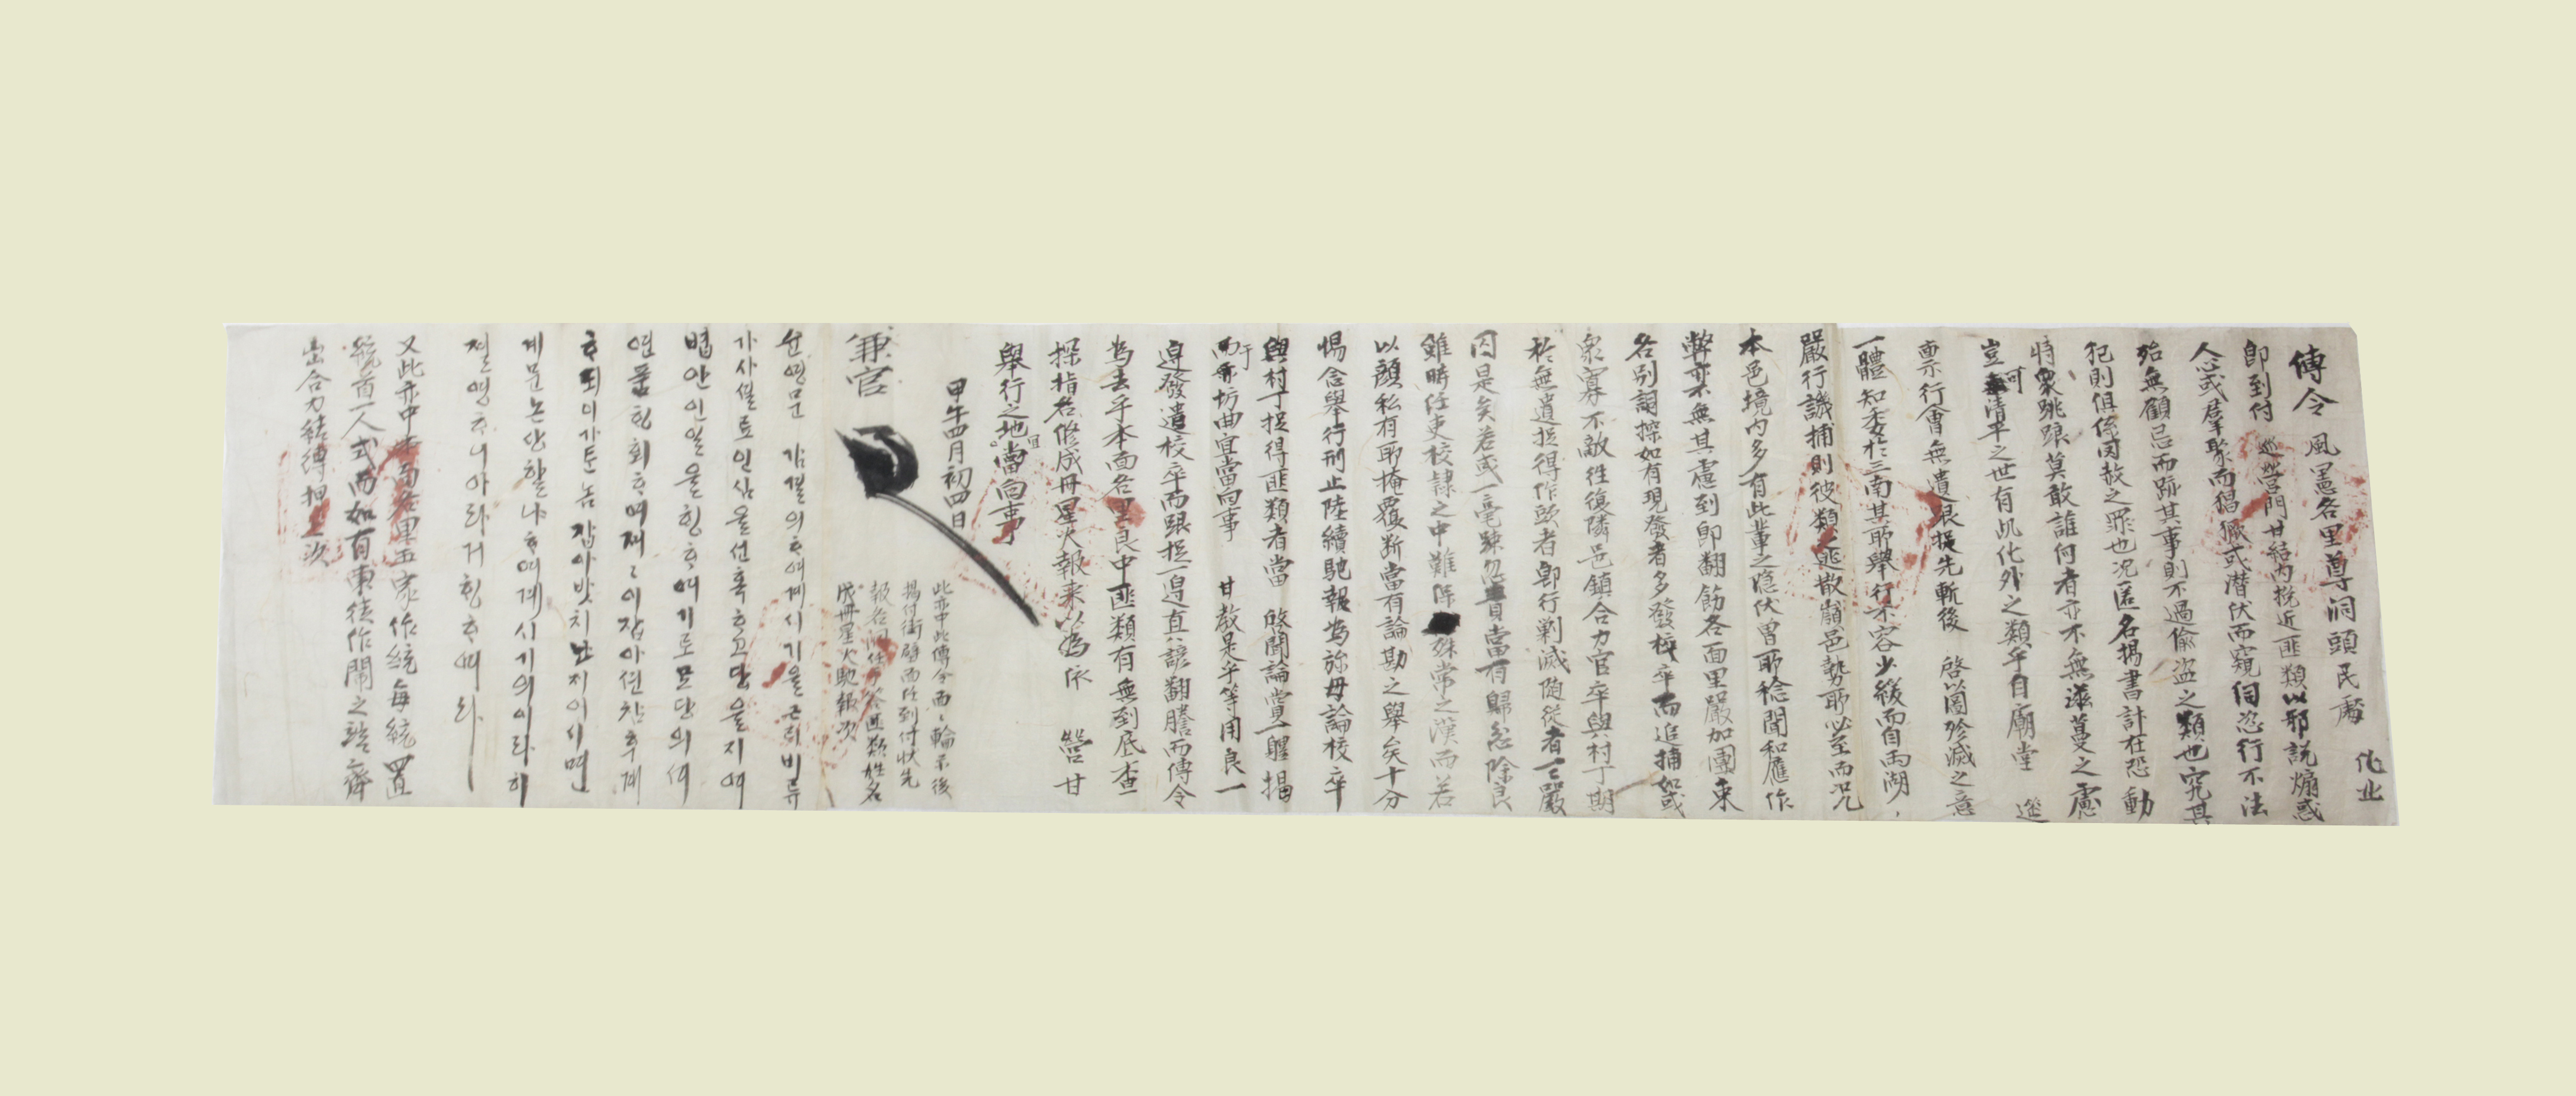 化北
傳令 風憲各里尊洞頭民處
卽到付 巡營門甘結內挽近匪類以邪說煽惑
人心或羣聚而猖獗或潛伏而窺伺恣行不法
殆無顧忌而跡其事則不過偸盜之類也究其
犯則俱係罔赦之罪也況匿名揭書計在恐動
恃衆跳踉莫敢誰何者亦不無滋蔓之慮
豈可淸平之世有此化外之類乎自廟堂 筵
稟行會無遺提先斬後 啓以圖殄滅之意
一體知委於三南其所舉行不容少緩而自兩湖
嚴行譏捕則彼類逃散嶺邑勢所必至而況
本邑境內多有此輩之隱伏曾所稔聞和應作
弊亦不無其慮到卽翻飭各面里嚴加團束
各別詗探如有現發者多發校卒而追捕如或
衆寡不敵往復隣邑鎭合力官卒與村丁期
於無遺捉得作頭者卽行剿滅隨從者嚴
囚是矣若或一毫踈忽責當有歸忿除良
雖時任吏校隷之中難保殊常之漢而若
以顔私有所掩覆斷當有論勘之舉矣十分
惕念舉行形止陸續馳報爲旀毋論校卒
與村丁捉得匪類者當 啓聞論賞一體揭
而于坊曲宜當向事 甘敎是乎等用良一
遵發遣校卒而跟捉一邊眞諺翻謄而傳令
爲去乎本面各里良中匪類有無到底查
探指名修成冊星火報來以爲依 營甘
舉行之地宜當向事
甲午四月初四日
此亦中此傳令面面輪示後
揭付街壁而段到付狀先
報各洞任匪類姓名
成冊星火馳報次
兼官
슌영문 감결의ᄒᆞ여계시기을근ᄅᆡ비류
가사셜로인심을션혹ᄒᆞ고
법안인일을ᄒᆡᆼᄒᆞ여기로
연품ᄒᆡᆼ회ᄒᆞ며ᄌᆡᄌᆡ이잡아션참후계
ᄒᆞ되이가튼놈잡아밧치난지이시면
계문논샹할나ᄒᆞ여계시기의이라히
젼령ᄒᆞ니아라거ᄒᆡᆼᄒᆞ여라
又此亦中本面各里五家作統每統置
統首一人式而如有東徒作鬧之弊齊
出合力結縛捉上次